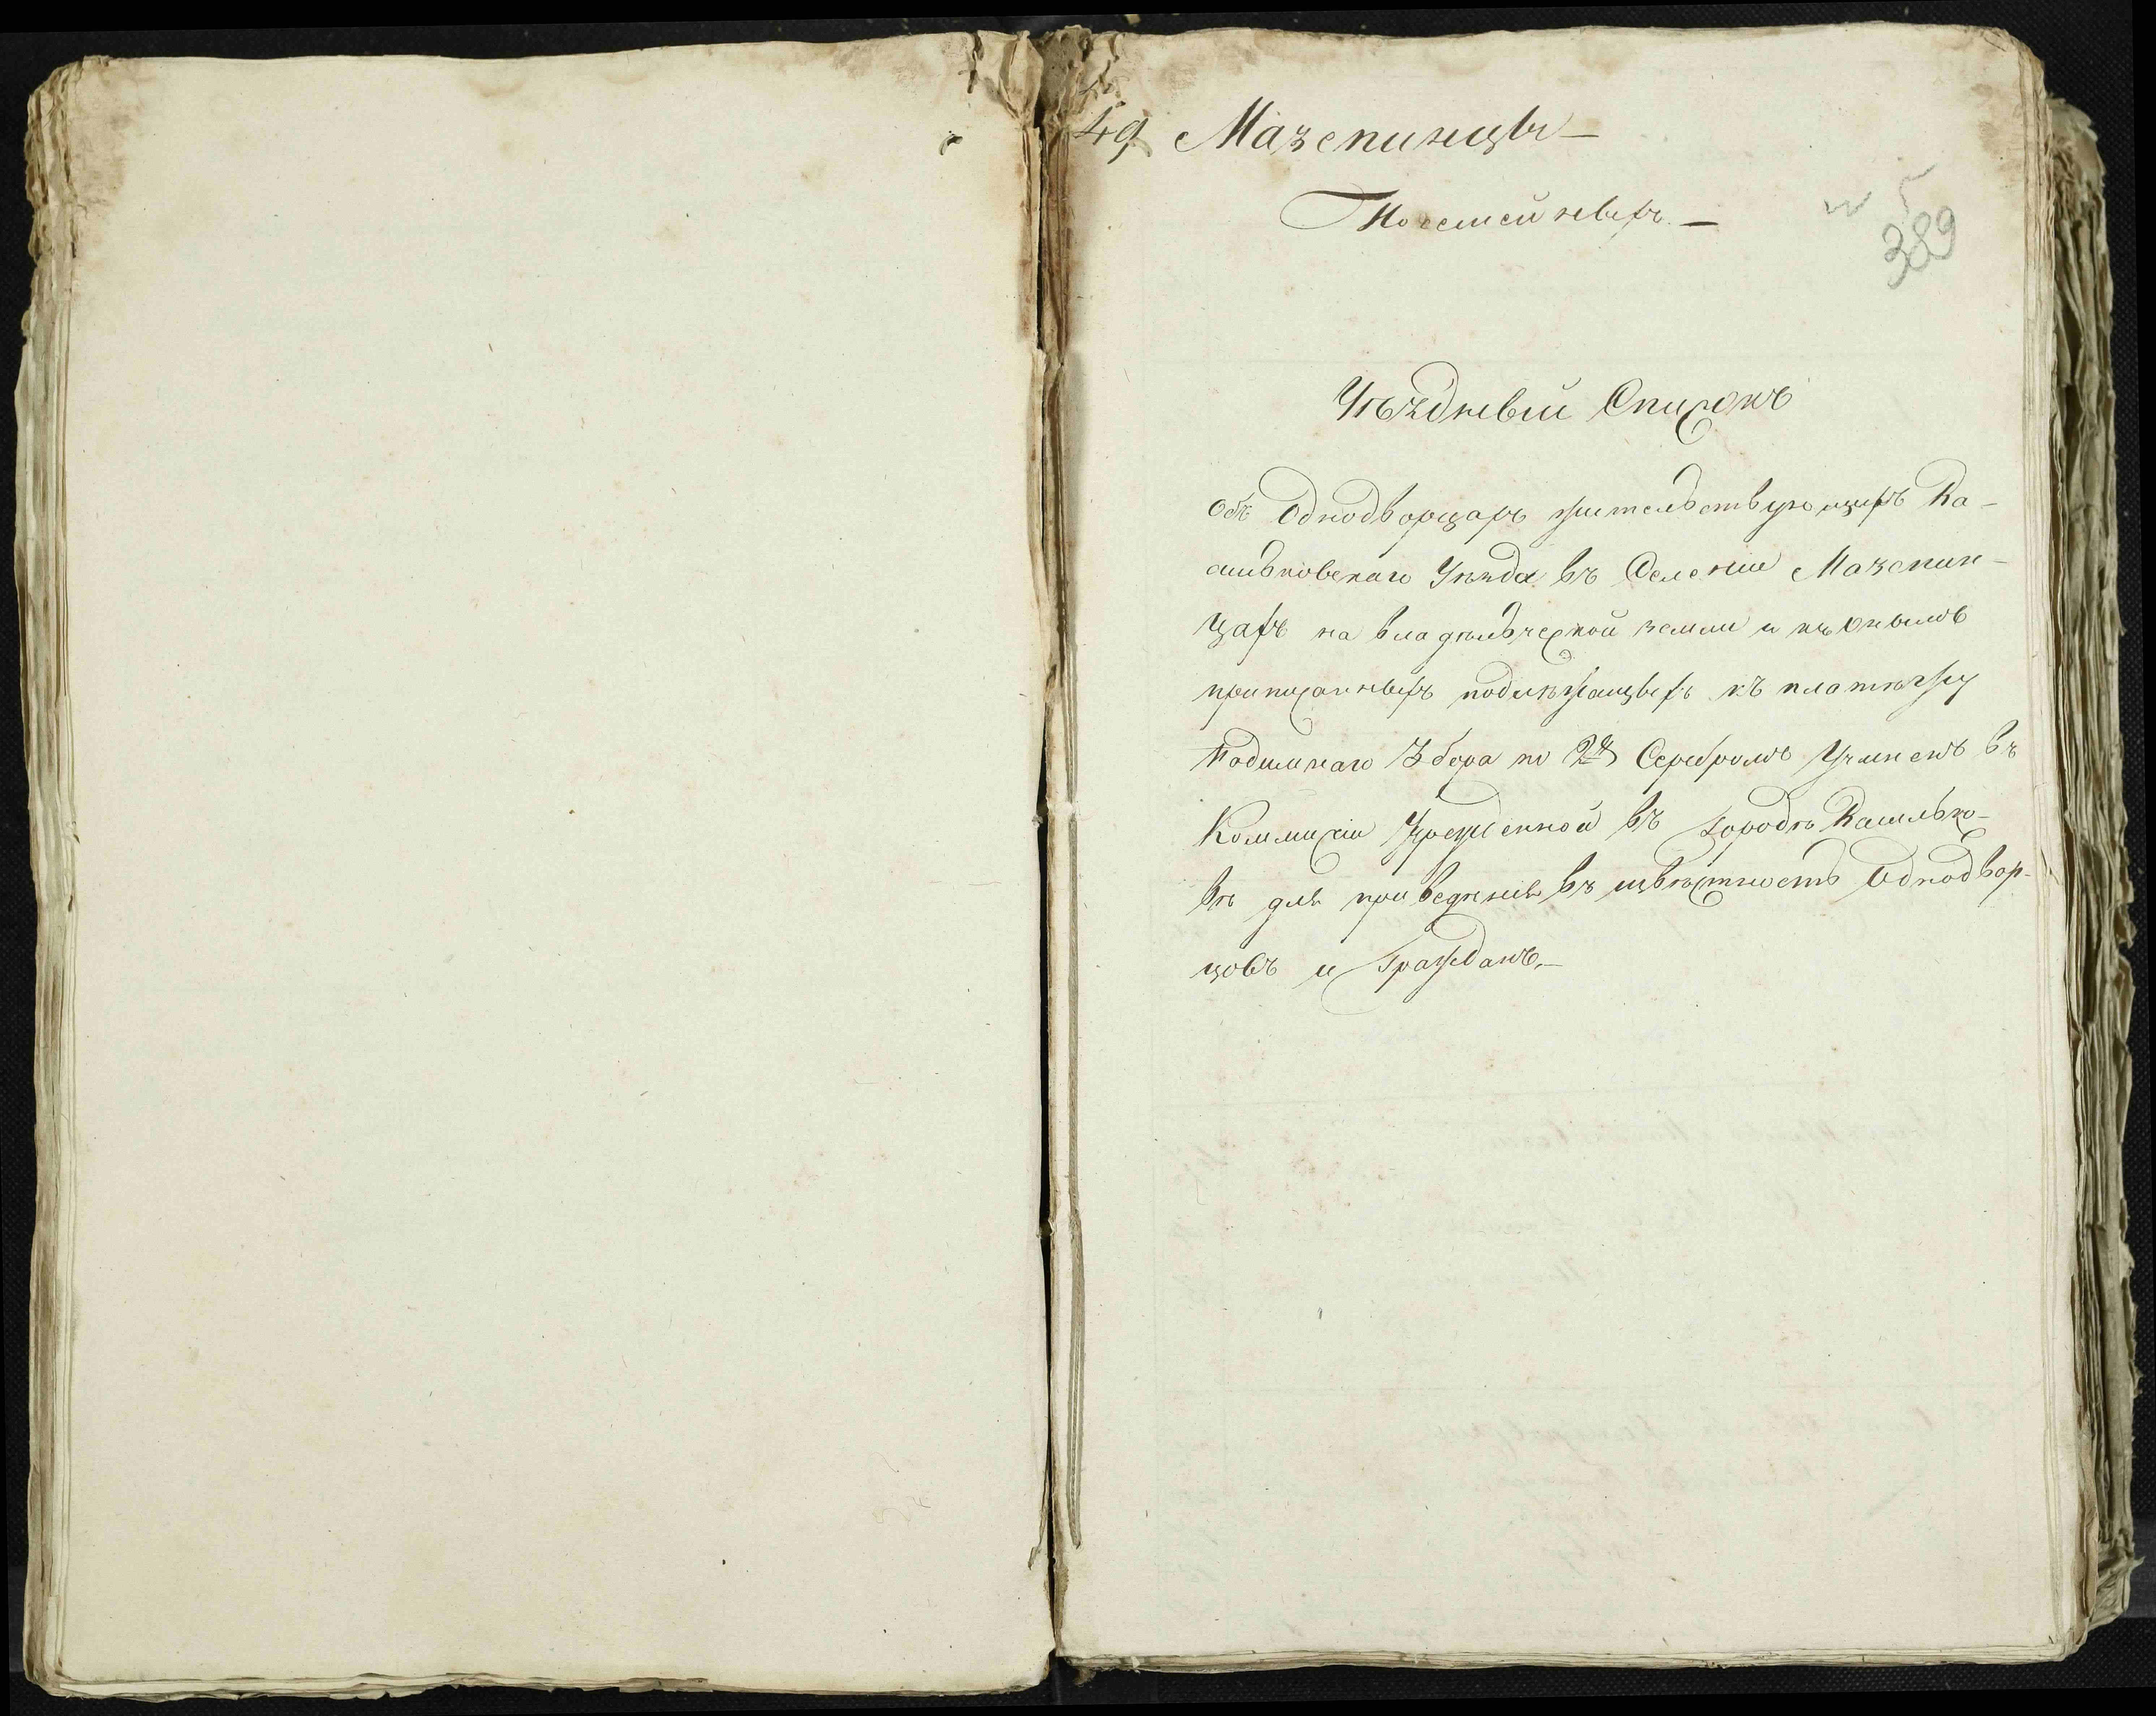 49 Мазепинцы —
Посемейныхъ. —
389
Уѣздный Списокъ
Объ Однодворцахъ жительствующихъ Ва-
сильковскаго Уѣзда въ Селеніи Мазепин-
цахъ на владѣльческой земли и къ онымъ
приписанныхъ подлежащыхъ къ платежу
Подымнаго Збора по 2 Серебромъ Учиненъ въ
Коммисіи Учрежденной въ городѣ Василько-
вѣ для приведенія въ извѣстность Однодвор-
цовъ и Гражданъ. —